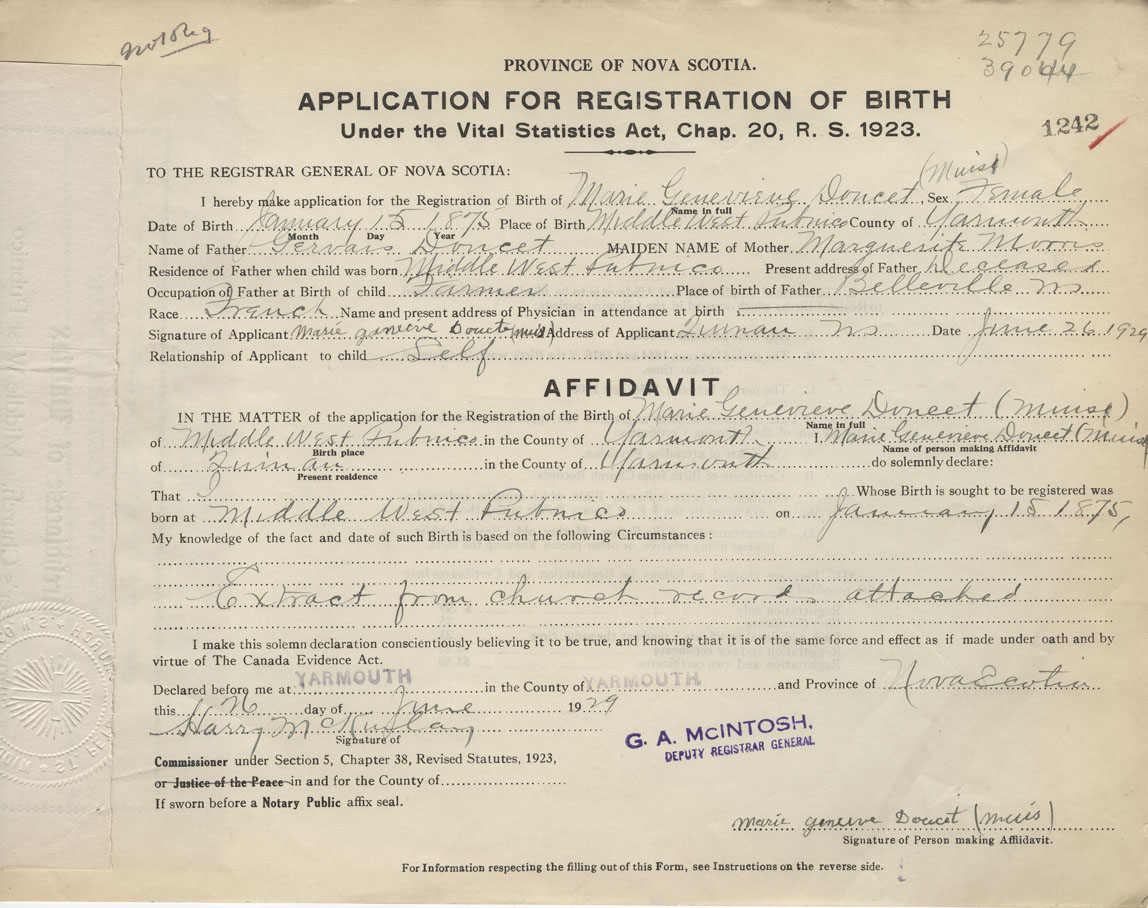 Not Reg
25779
39044
PROVINCE OF NOVA SCOTIA.
APPLICATION FOR REGISTRATION OF BIRTH
Under the Vital Statistics Act, Chap. 20, R. S. 1923.
1242
TO THE REGISTRAR GENERAL OF NOVA SCOTIA:
(Muise)
I hereby make application for the Registration of Birth of Marie Genevieve Doucet, Sex Female
Name in full
Date of Birth January 15 1875 Place of Birth Middle West Pubnico County of Yarmouth
Month Day Year
Name of Father Gervais Doucet MAIDEN NAME of Mother Marguerite Morris
Residence of Father when child was born Middle West Pubnico Present address of Father Deceased
Occupation of Father at Birth of child Farmer Place of birth of Father Belleville NS
Race French Name and present address of Physician in attendance at birth
Signature of Applicant Marie geneieve Doucet (muis) Address of Applicant Quinan NS Date June 26 1929
Relationship of Applicant to child Self
AFFIDAVIT
IN THE MATTER of the application for the Registration of the Birth of Marie Genevieve Doucet (Muise)
Name in full
of Middle West Pubnico in the County of Yarmouth I, Marie Genevieve Doucet (Muise
Birth place Name of person making Affidavit
of Quinan in the County of Yarmouth do solemnly declare:
Present residence
That I Whose Birth is sought to be registered was
born at Middle West Pubnico on January 15 1875,
My knowledge of the fact and date of such Birth is based on the following Circumstances :
Extract from church records attached
I make this solemn declaration conscientiously believing it to be true, and knowing that it is of the same force and effect as if made under oath and by
virtue of The Canada Evidence Act.
Declared before me at YARMOUTH in the County of YARMOUTH and Province of Nova Scotia
this 26 day of June 1929
Harry
Signature of
G. A. McINTOSH.
DEPUTY REGISTRAR GENERAL
Commissioner under Section 5, Chapter 38, Revised Statutes, 1923,
or Justice of the Peace in and for the County of
If sworn before a Notary Public affix seal.
marie Doucet (muis)
Signature of Person making Affiidavit.
For Information respecting the filling out of this Form, see Instructions on the reverse side.